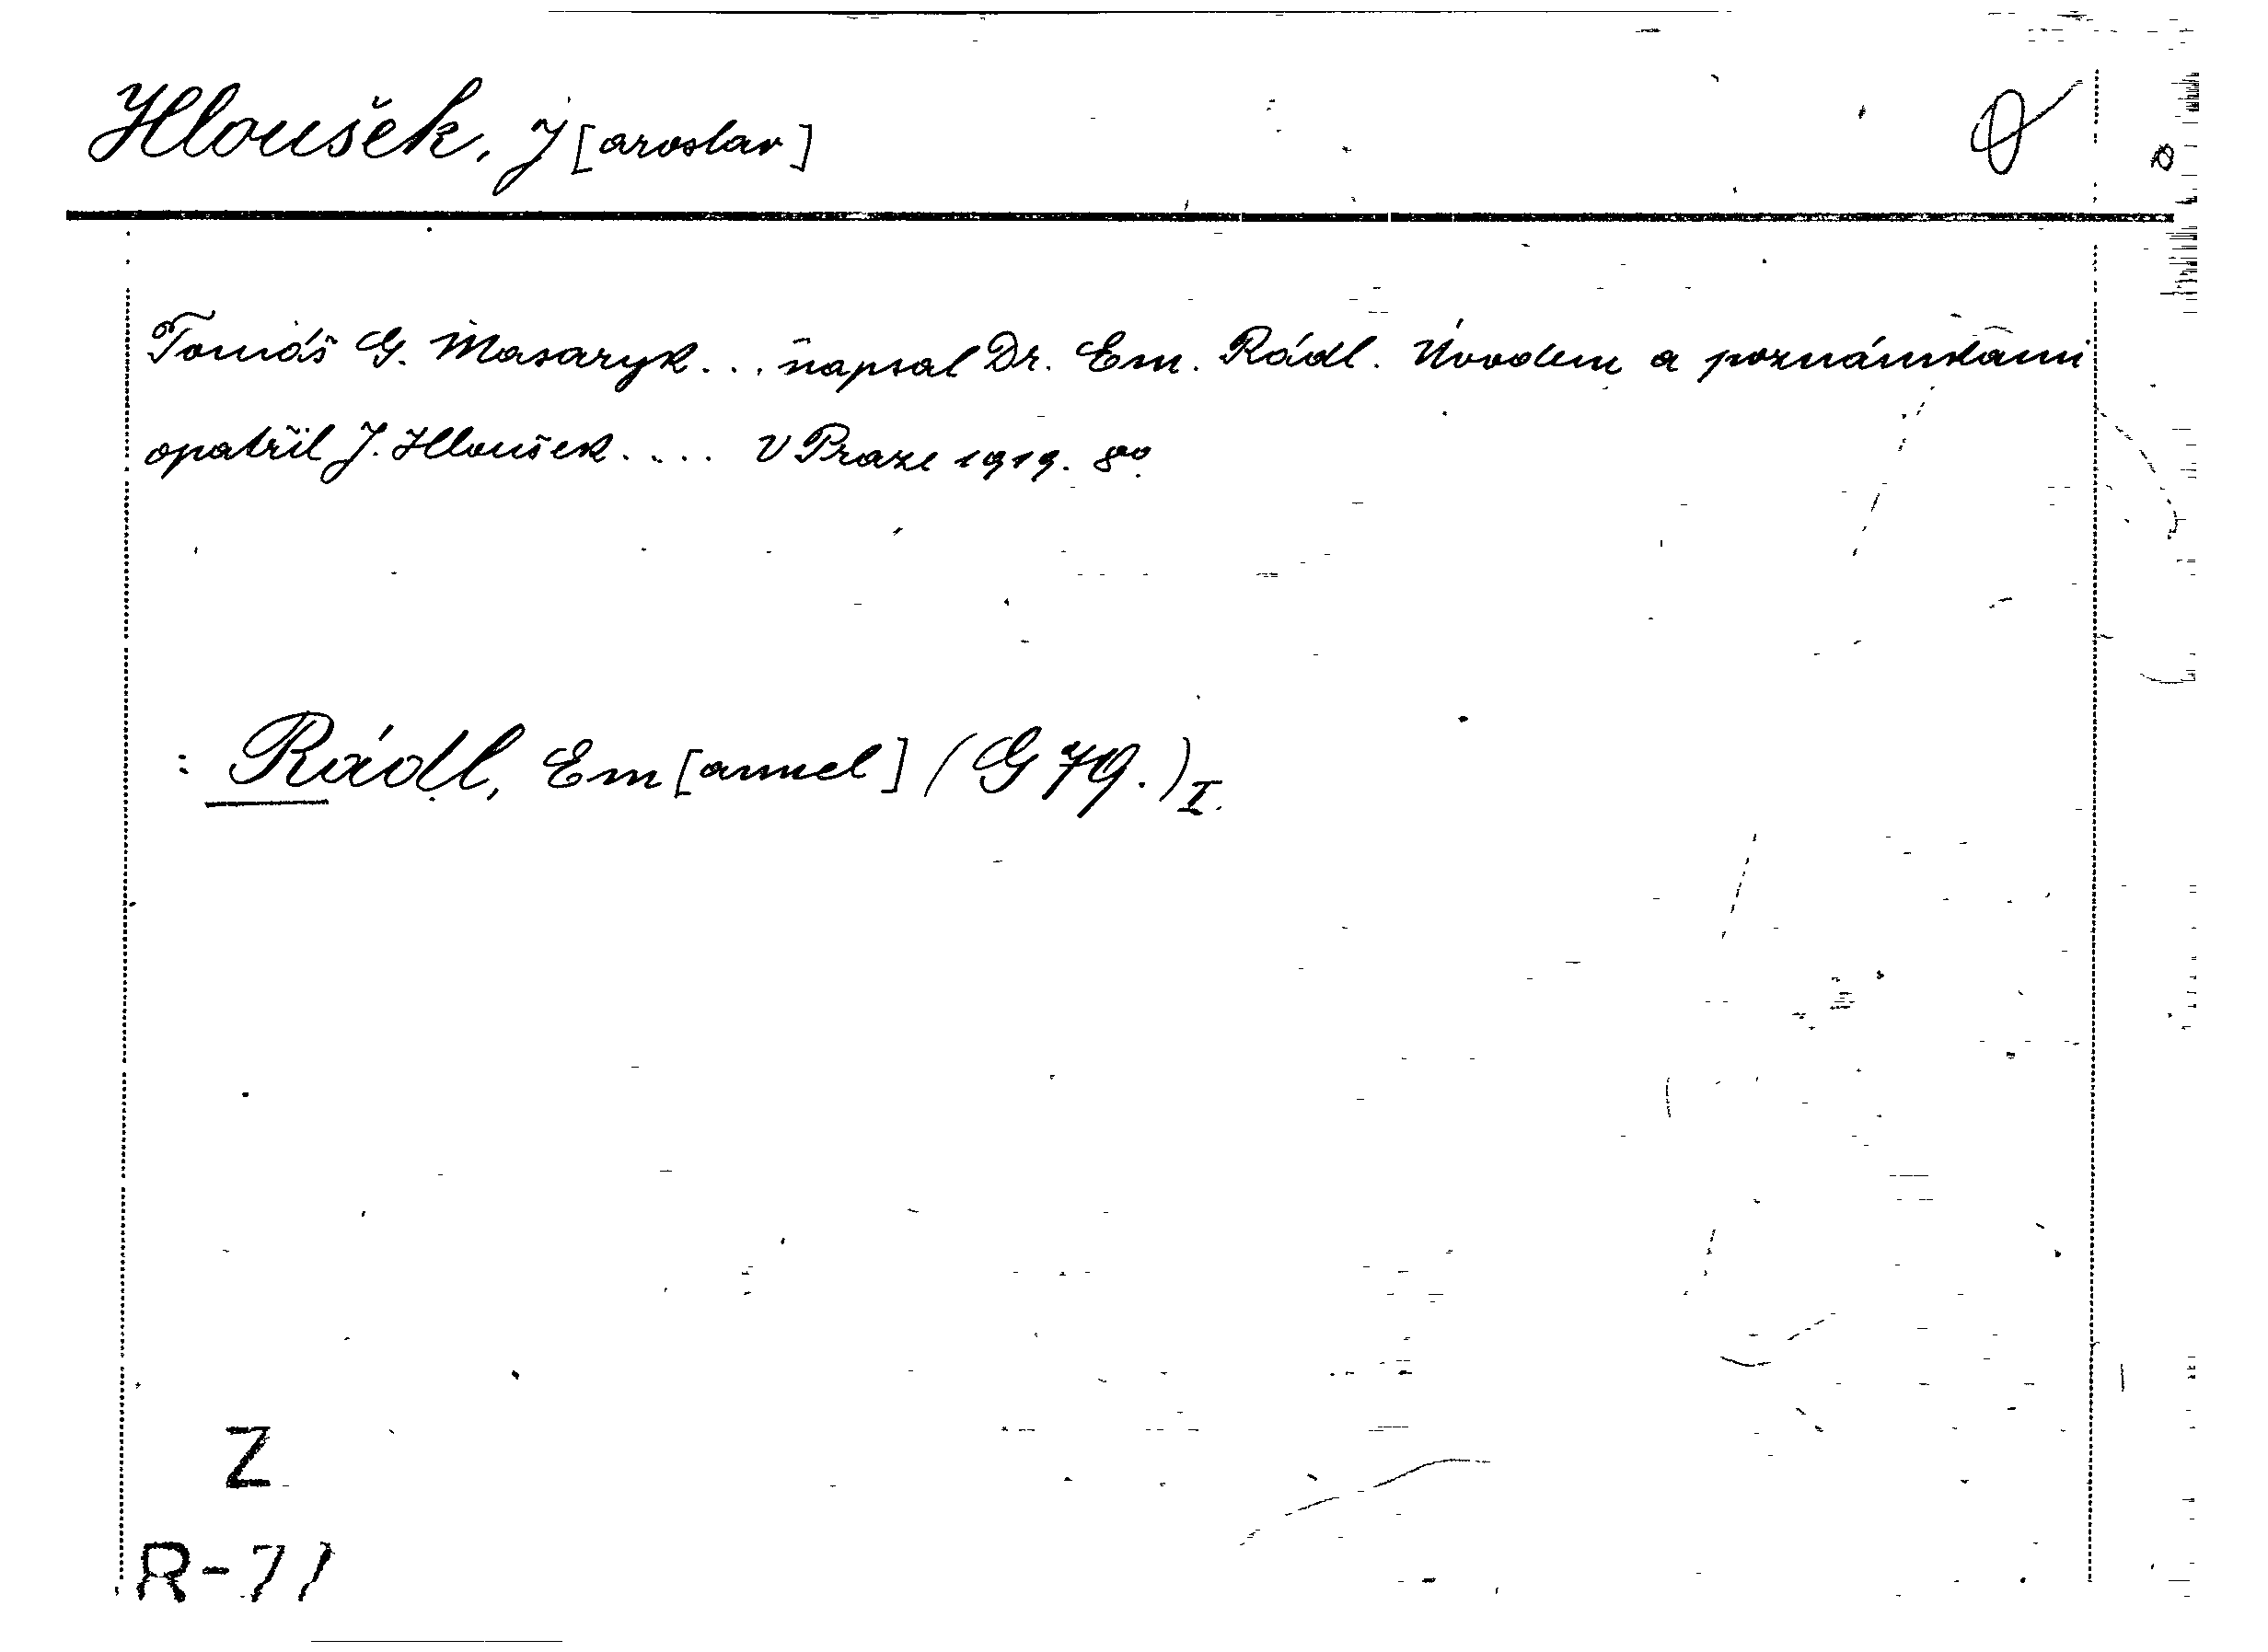 Hloušek, J[aroslav]
Tomáš G. Masaryk... napsal Dr. Em. Rádl. Úvodem a poznámkami
opatřil J. Hloušek.... V Praze 1919. 8º.
: Rádl, Em[anuel] (G 79.) I.
Z
R-71